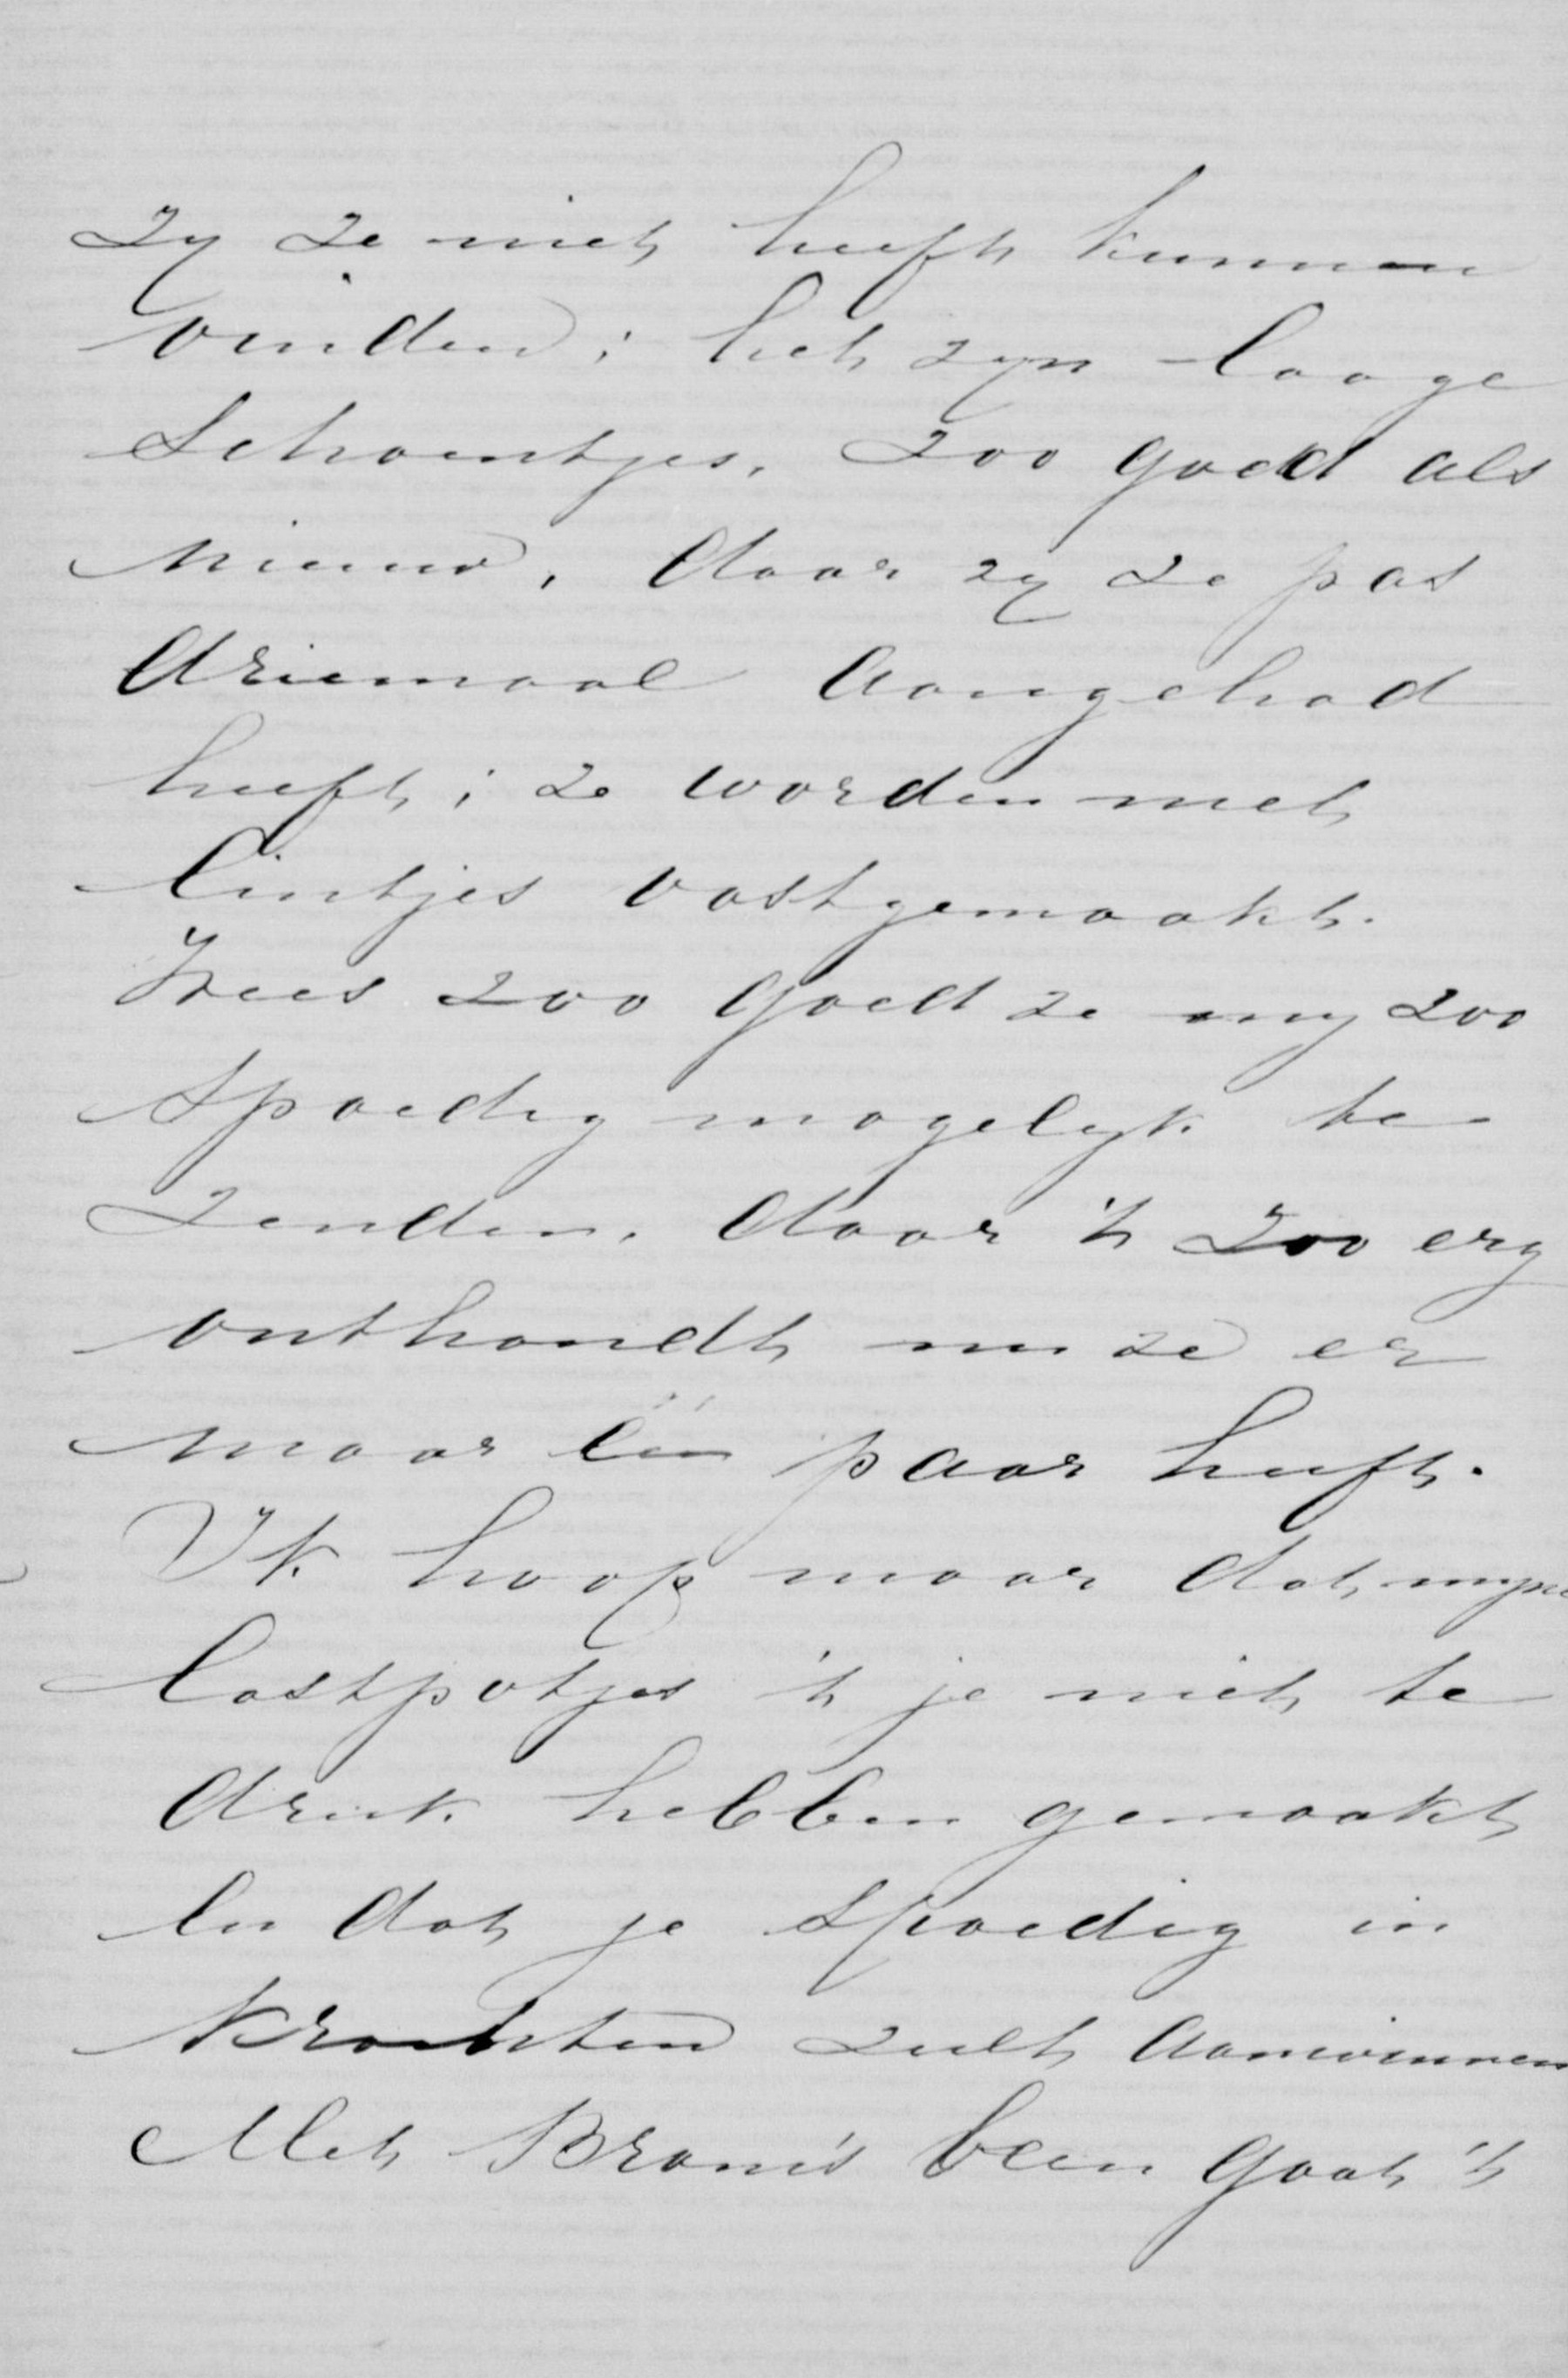 zy ze niet heeft kunnen
vinden; het zyn laage
schoentjes, zoo goed als
nieuw, daar zy ze pas
driemaal aangehad
heeft; ze worden met
lintjes vastgemaakt.
Wees zoo goed ze my zoo
spoedig mogelyk te
zenden, daar 't zoo erg
onthandt nu ze er
maar één paar heeft.
Ik hoop maar dat myne
lastpotjes 't je niet te
druk hebben gemaakt
en dat je spoedig in
krachten zult aanwinnen
Met Bram's been gaat 't